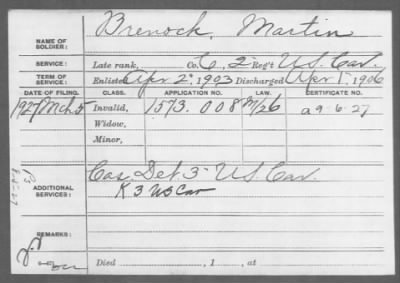 NAME OF SOLDIER: Brenock, Martin
SERVICE: Late rank, Co. C, 2" Reg't U.S. Cav.
TERM OF SERVICE: Enlisted Apr 2" 1903 Discharged Apr 1" 1906
DATE OF FILING. CLASS. APPLICATION NO. LAW. CERTIFICATE NO.
1927 Mch 5 Invalid, 1573.008 M/26 a 9-6-27
Widow,
Minor,
ADDITIONAL SERVICES: Cas. Det 3" U.S. Cav.
K 3 US Cav
REMARKS:
Died , 1 , at